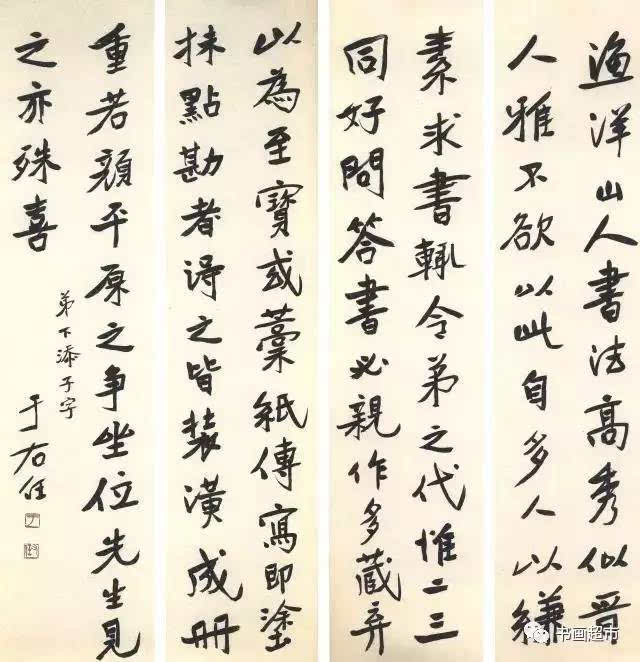 漁洋山人書法高秀似晋
人雅不欲以此自多人以縑
素求書輒令弟之代惟二三
同好問答書必親作多藏弆
以為至寶或藁紙傳寫即塗
抹點勘者得之皆裝潢成冊
重若顏平原之争坐位先生見
之亦殊喜
弟下添子字
于右任
书画超市